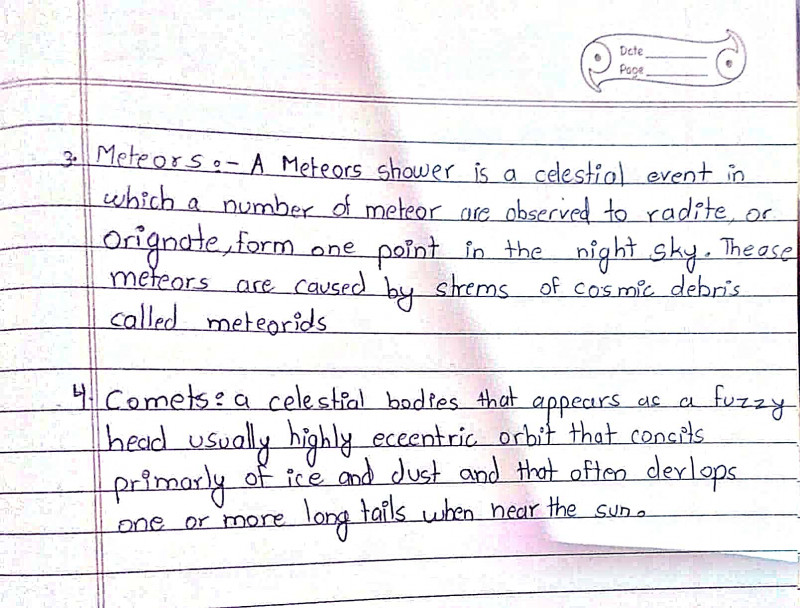 Date
Page
3. Meteors :- A Meteors shower is a celestial event in
which a number of meteor are observed to radite, or
orignate, form one point in the night sky. Thease
meteors are caused by strems of cosmic debris
called meteorids
4. Comets: a celestial bodies that appears as a fuzzy
head usually highly eceentric orbit that consits
primarly of ice and dust and that often devlops
one or more long tails when near the sun.